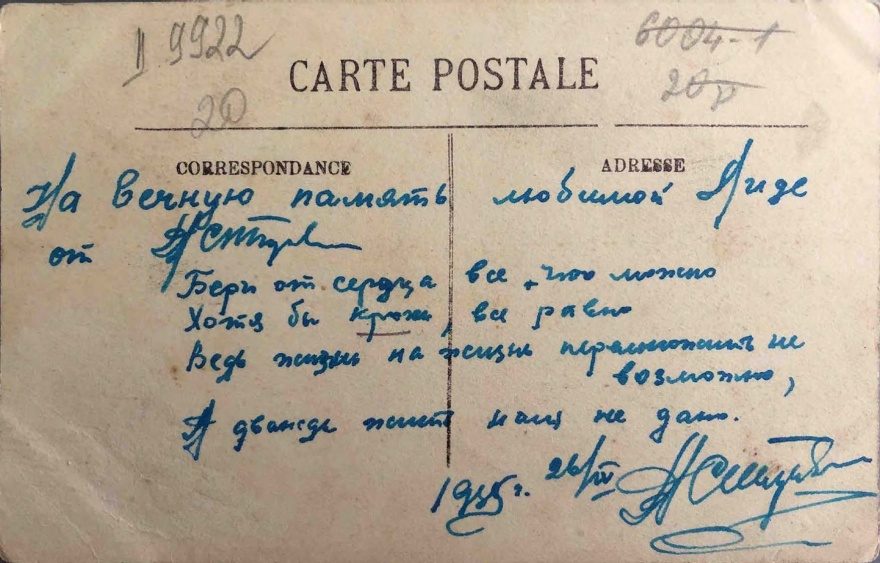 II 9922
20
6004-1
20р
CARTE POSTALE
CORRESPONDANCE
ADRESSE
На вечную память любимой Лиде
от
Бери от сердца все, что можно
Хотя бы крохи, все равно
Ведь жизнь на жизнь перемножить не
возможно,
А дважды жить нам не дано.
26/III